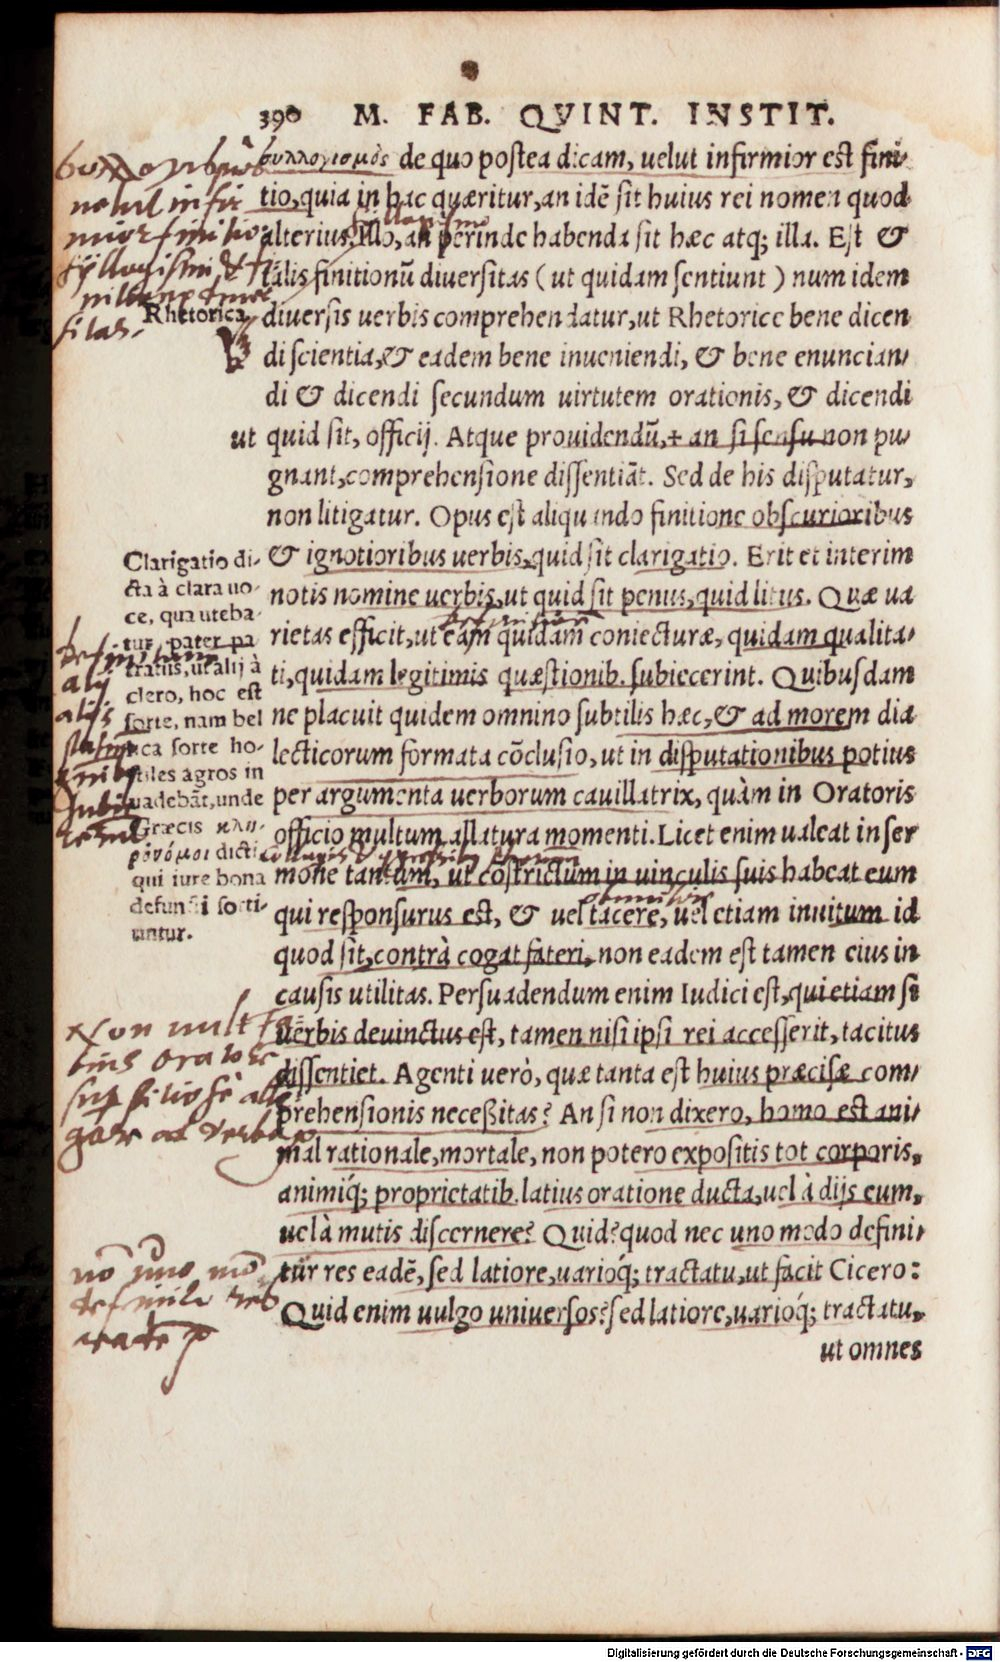 390 M. FAB. QVINT. INSTIT.
συλλογισμὸς de quo postea dicam, uelut infirmior est fini-
tio, quia in hac quæritur, an idē sit huius rei nomen quod
alterius, Illo, an perinde habenda sit hæc atq; illa. Est &
talis finitionū diuersitas ( ut quidam sentiunt ) num idem
diuersis uerbis comprehendatur, ut Rhetorice bene dicen
di scientia, & eadem bene inueniendi, & bene enuncian-
di & dicendi secundum uirtutem orationis, & dicendi
ut quid sit, officij. Atque prouidendū, + an si sensu non pu-
gnant, comprehensione dissentiāt. Sed de his disputatur,
non litigatur. Opus est aliquando finitione obscurioribus
& ignotioribus uerbis, quid sit clarigatio. Erit et interim
notis nomine uerbis, ut quid sit penus, quid litus. Quæ ua
rietas efficit, ut eam quidam coniecturæ, quidam qualita-
ti, quidam legitimis quæstionib. subiecerint. Quibusdam
ne placuit quidem omnino subtilis hæc, & ad morem dia
lecticorum formata cōclusio, ut in disputationibus potius
per argumenta uerborum cauillatrix, quàm in Oratoris
officio multum allatura momenti. Licet enim ualeat in ser
mone tantum, ut cōstrictum in uinculis suis habeat eum
qui responsurus est, & uel tacere, uel etiam inuitum id
quod sit, contrà cogat fateri, non eadem est tamen eius in
causis utilitas. Persuadendum enim Iudici est, qui etiam si
uerbis deuinctus est, tamen nisi ipsi rei accesserit, tacitus
dissentiet. Agenti uerò, quæ tanta est huius præcisæ com-
prehensionis necessitas? An si non dixero, homo est ani-
mal rationale, mortale, non potero expositis tot corporis,
animiq́; proprietatib. latius oratione ducta, uel à dijs eum,
uel à mutis discernere? Quid? quod nec uno modo defini-
tur res eadē, sed latiore, uarioq́; tractatu, ut facit Cicero:
Quid enim uulgo uniuersos? sed latiore, uarioq́; tractatu,
ut omnes
Rhetorica
Clarigatio di-
cta à clara uo-
ce, qua uteba-
tur pater pa
tratus, ut alij à
clero, hoc est
sorte, nam bel
lica sorte ho-
stiles agros in
uadebāt, unde
Græcis κλη-
ρόνόμοι dicti
qui iure bona
defuncti sorti-
untur.
uelut infir
mior finitio
syllogismi
Non mult
definiti res